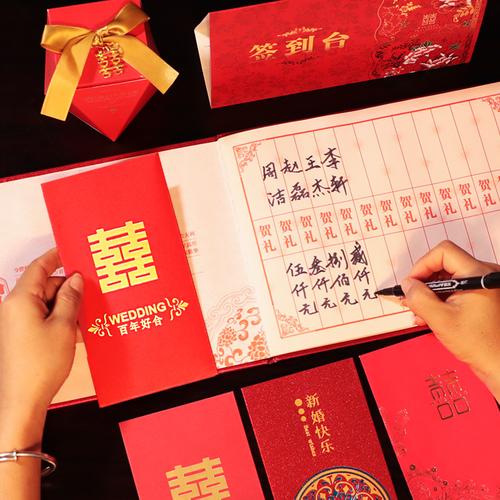 囍
签到台
囍
囍
WEDDING
百年好合
李轩
王杰
赵磊
周洁
贺礼
贺礼
贺礼
贺礼
贺礼
贺礼
贺礼
贺礼
贺礼
贺礼
贰仟元
捌佰元
叁仟元
伍仟元
囍
新婚快乐
Best Wishes
囍